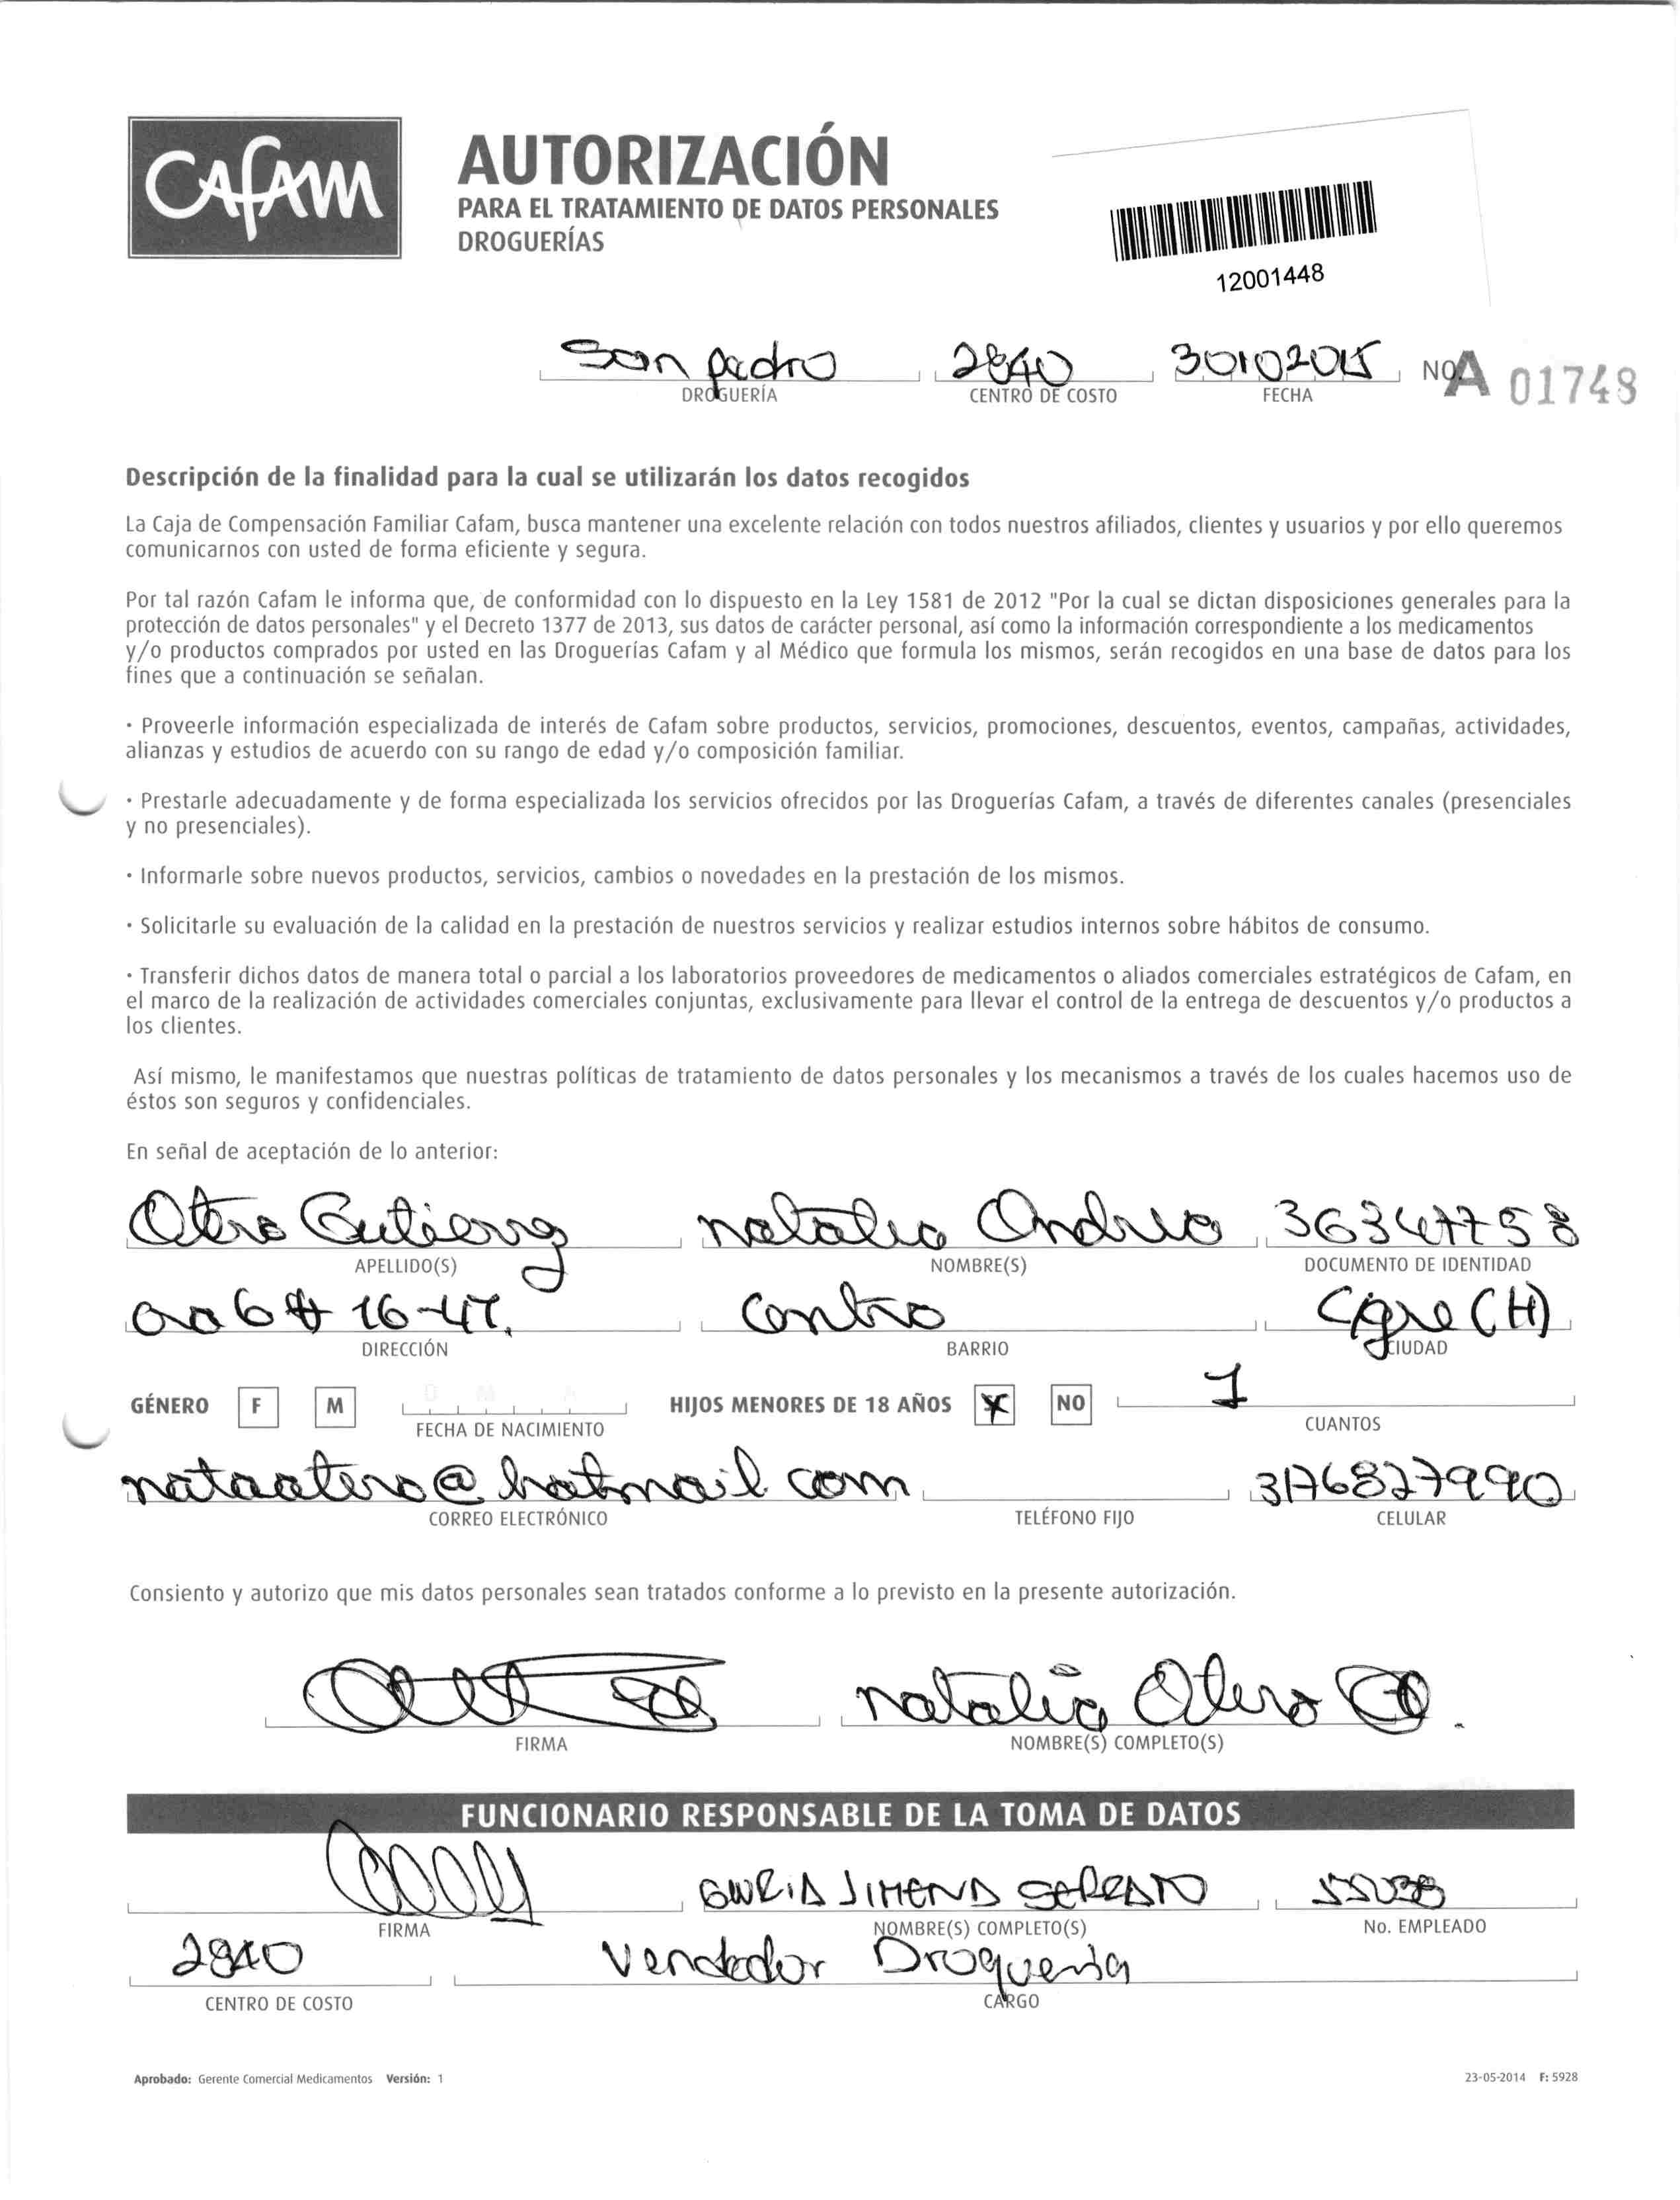 CAFAM
AUTORIZACIÓN
PARA EL TRATAMIENTO DE DATOS PERSONALES
DROGUERÍAS
12001448
San pedro 2840 30102015 No. A 01748
DROGUERÍA CENTRO DE COSTO FECHA
Descripción de la finalidad para la cual se utilizarán los datos recogidos
La Caja de Compensación Familiar Cafam, busca mantener una excelente relación con todos nuestros afiliados, clientes y usuarios y por ello queremos
comunicarnos con usted de forma eficiente y segura.
Por tal razón Cafam le informa que, de conformidad con lo dispuesto en la Ley 1581 de 2012 "Por la cual se dictan disposiciones generales para la
protección de datos personales" y el Decreto 1377 de 2013, sus datos de carácter personal, así como la información correspondiente a los medicamentos
y/o productos comprados por usted en las Droguerías Cafam y al Médico que formula los mismos, serán recogidos en una base de datos para los
fines que a continuación se señalan.
· Proveerle información especializada de interés de Cafam sobre productos, servicios, promociones, descuentos, eventos, campañas, actividades,
alianzas y estudios de acuerdo con su rango de edad y/o composición familiar.
· Prestarle adecuadamente y de forma especializada los servicios ofrecidos por las Droguerías Cafam, a través de diferentes canales (presenciales
y no presenciales).
· Informarle sobre nuevos productos, servicios, cambios o novedades en la prestación de los mismos.
· Solicitarle su evaluación de la calidad en la prestación de nuestros servicios y realizar estudios internos sobre hábitos de consumo.
· Transferir dichos datos de manera total o parcial a los laboratorios proveedores de medicamentos o aliados comerciales estratégicos de Cafam, en
el marco de la realización de actividades comerciales conjuntas, exclusivamente para llevar el control de la entrega de descuentos y/o productos a
los clientes.
Así mismo, le manifestamos que nuestras políticas de tratamiento de datos personales y los mecanismos a través de los cuales hacemos uso de
éstos son seguros y confidenciales.
En señal de aceptación de lo anterior:
Otero Gutierrez natalia Andrea 36347758
APELLIDO(S) NOMBRE(S) DOCUMENTO DE IDENTIDAD
6 # 16-47. Centro (H)
DIRECCIÓN BARRIO CIUDAD
GÉNERO F M FECHA DE NACIMIENTO HIJOS MENORES DE 18 AÑOS X NO 1 CUANTOS
nataotero@hotmail com 3176827990
CORREO ELECTRÓNICO TELÉFONO FIJO CELULAR
Consiento y autorizo que mis datos personales sean tratados conforme a lo previsto en la presente autorización.
natalia Otero G.
FIRMA NOMBRE(S) COMPLETO(S)
FUNCIONARIO RESPONSABLE DE LA TOMA DE DATOS
GLORIA JIMENA
FIRMA NOMBRE(S) COMPLETO(S) No. EMPLEADO
2840 Vendedor Drogueria
CENTRO DE COSTO CARGO
Aprobado: Gerente Comercial Medicamentos Versión: 1 23-05-2014 F: 5928